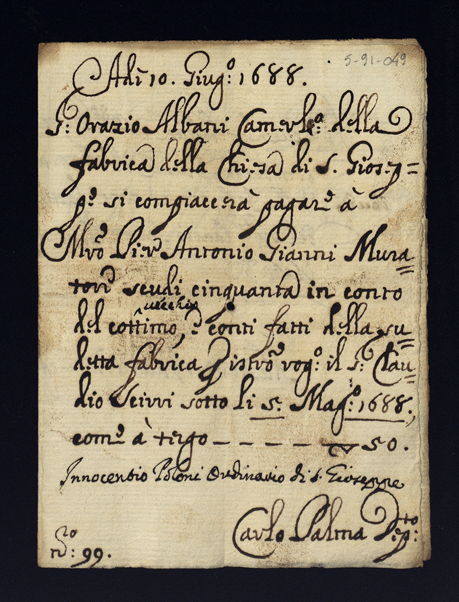 5-91-049
Adi 10. Giug.º 1688.
S.r Orazio Albani Camerl.º della
fabrica della Chiesa di S. Giosep=
pe si compiacerà pagare à
Mro Pier Antonio Gianni Mura=
tore scudi cinquanta in conto
vecchio
del cottimo, e conti fatti della su=
detta fabrica Istro rog.º il S.r Clau=
dio Scivvi sotto li 5. Mag.º 1688.
come à tergo — — — — — 50.
Innocentio Poloni Ordinario di S. Gioseppe
Carlo Palma Dep.to
n.ro 99.